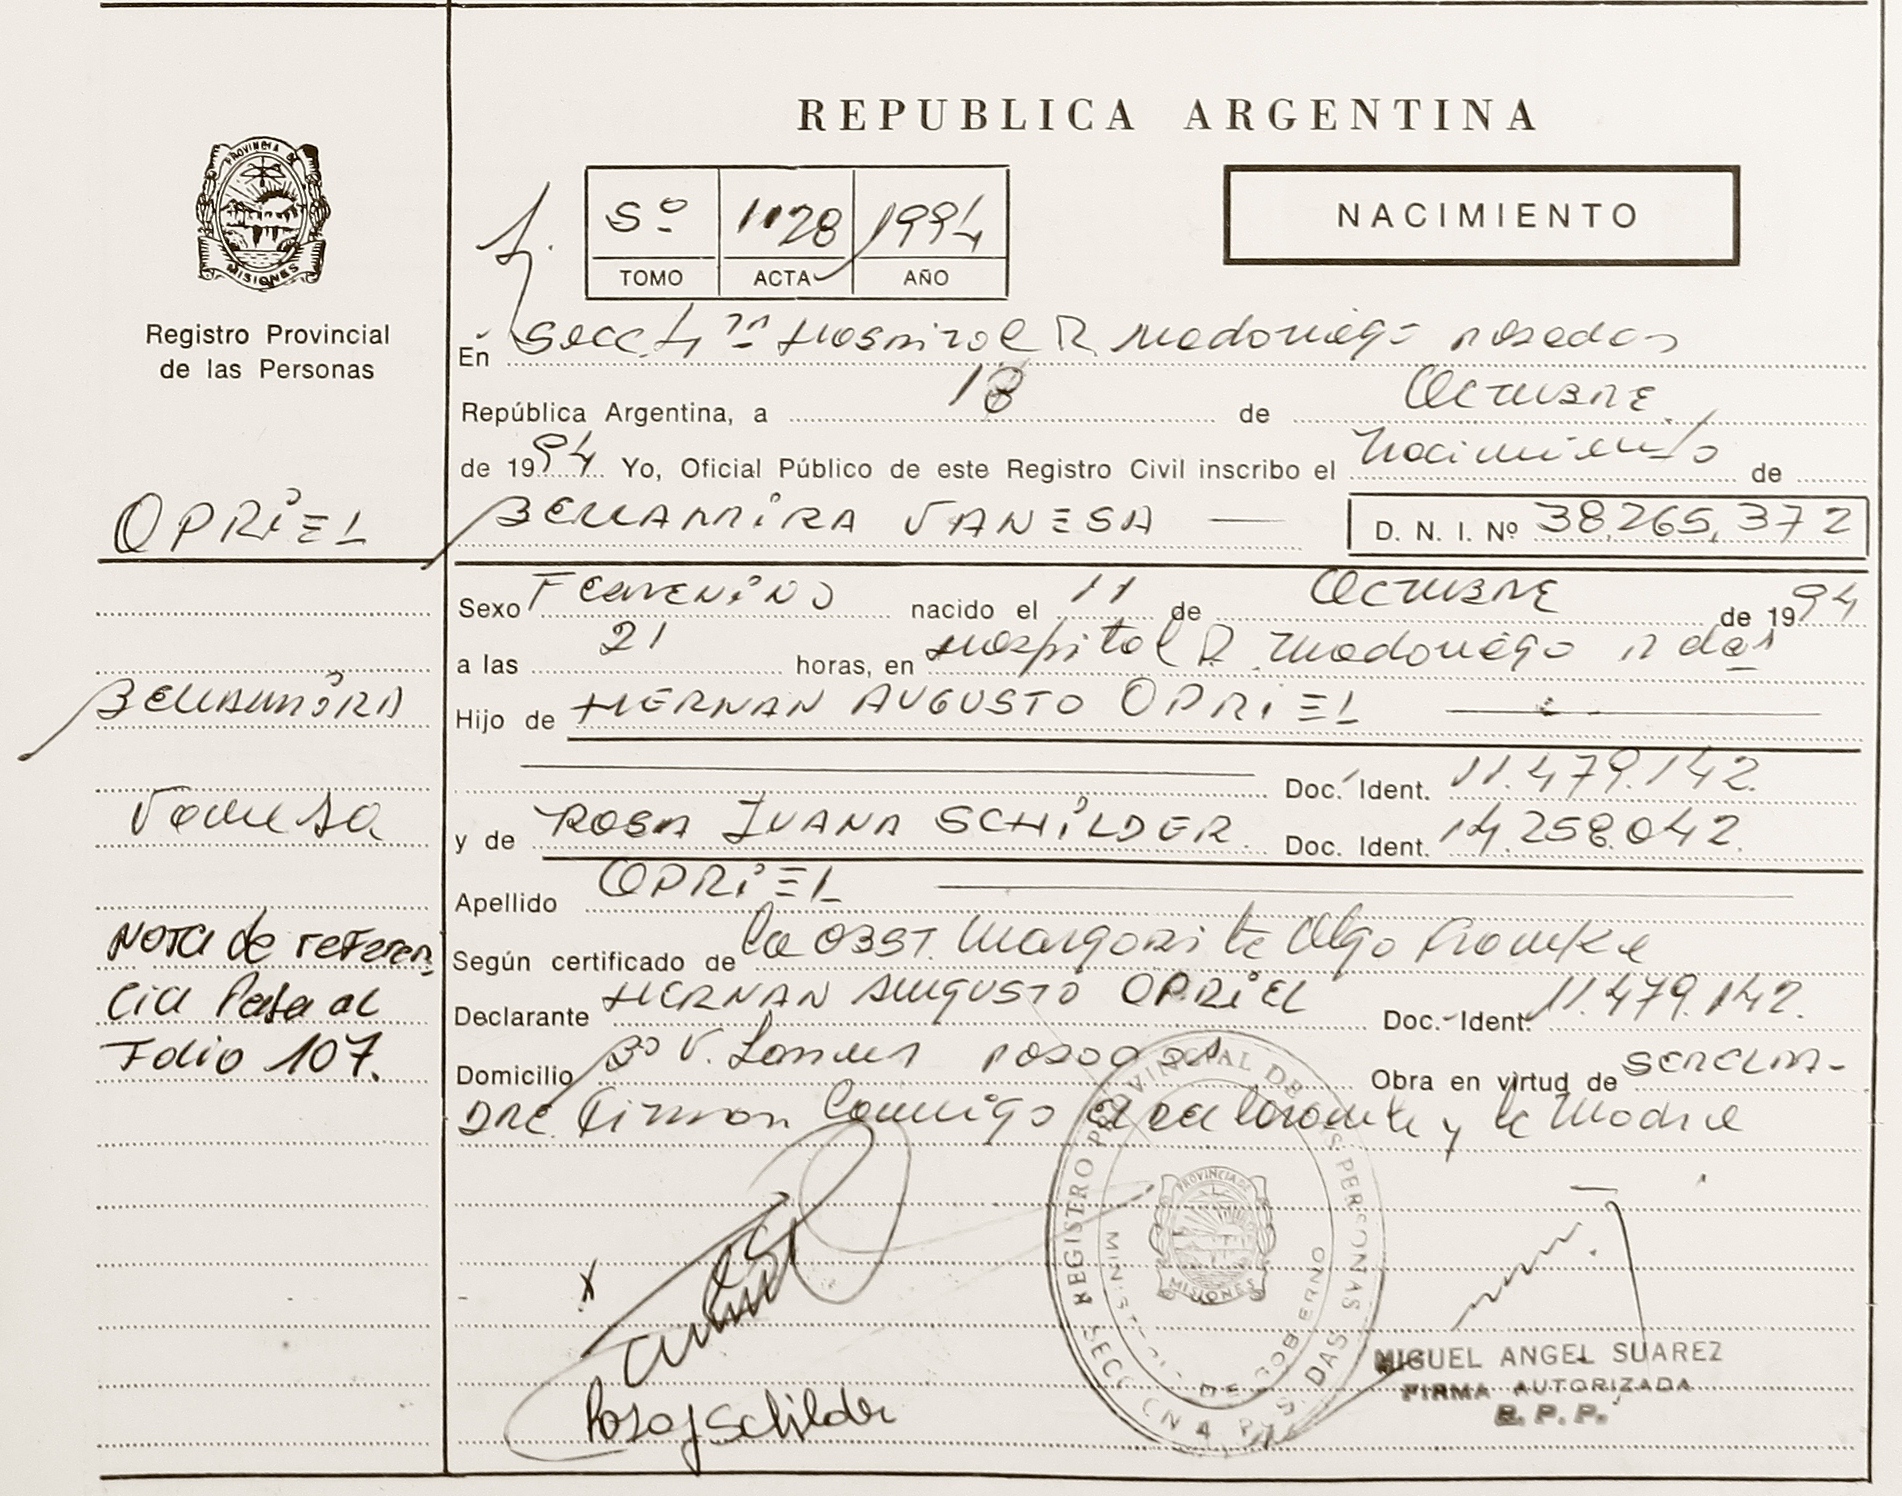 REPUBLICA ARGENTINA
PROVINCIA DE
MISIONES
Registro Provincial
de las Personas
5º 1128 1994
TOMO ACTA AÑO
NACIMIENTO
En Secc. 4 Hospital R Madariaga Posadas
República Argentina, a 18 de Octubre
de 1994 Yo, Oficial Público de este Registro Civil inscribo el Nacimiento de
OPRIEL
BELLAMIRA VANESA D. N. I. Nº 38.265.372
Sexo Femenino nacido el 11 de Octubre de 1994
a las 21 horas, en Hospital R. Madariaga Pdas
BELLAMIRA
Hijo de HERNAN AUGUSTO OPRIEL
Doc. Ident. 11.479.142.
Vanesa
y de ROSA JUANA SCHILDER. Doc. Ident. 14.258.042.
Apellido OPRIEL
Nota de referen
cia Pasa al
Folio 107.
Según certificado de la OBST. Margarita Olga
Declarante HERNAN AUGUSTO OPRIEL Doc. Ident. 11.479.142.
Domicilio Bº V. Posadas Obra en virtud de SERCLA-
DRE. Firman Conmigo el declarante y la Madre
REGISTRO PROVINCIAL DE LAS PERSONAS
MINISTERIO DE GOBIERNO
PROVINCIA DE
MISIONES
SECCION 4, POSADAS
x
Rosa J Schilder
MIGUEL ANGEL SUAREZ
FIRMA AUTORIZADA
R. P. P.